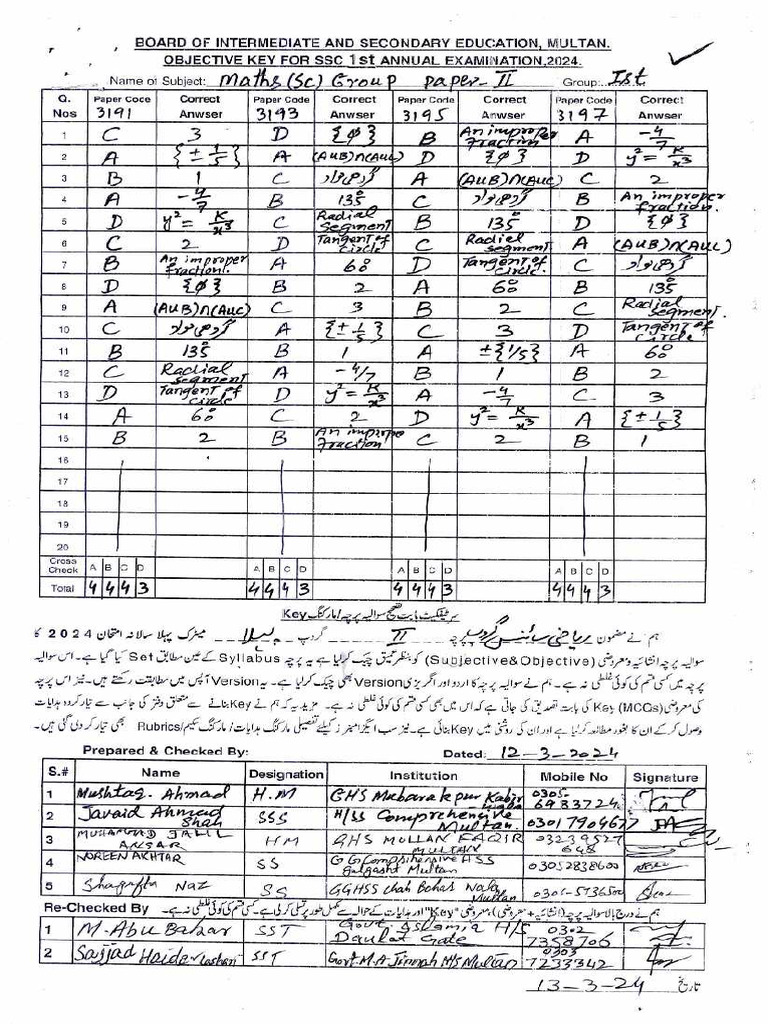 BOARD OF INTERMEDIATE AND SECONDARY EDUCATION, MULTAN.
OBJECTIVE KEY FOR SSC 1st ANNUAL EXAMINATION,2024.
Name of Subject: Maths (Sc) Group paper-II Group: Ist
Q. Nos Paper Code 3191 Correct Anwser Paper Code 3193 Correct Anwser Paper Code 3195 Correct Anwser Paper Code 3197 Correct Anwser
1 C 3 D {φ} B An improper Fraction A -4/7
2 A {± 1/5} A (AUB)∩(AUC) D {φ} D y² = K/x³
3 B 1 C A (AUB)∩(AUC) C 2
4 A -4/7 B 135° C B An improper fraction.
5 D y² = K/x³ C Radial Segment B 135° D {φ}
6 C 2 D Tangent of Circle C Radial segment A (AUB)∩(AUC)
7 B An improper fraction. A 60° D Tangent of Circle. C
8 D {φ} B 2 A 60° B 135°
9 A (AUB)∩(AUC) C 3 B 2 C Radial Segment
10 C A {± 1/5} C 3 D Tangent of circle
11 B 135° B 1 A ±{1/5} A 60°
12 C Radial segment A -4/7 B 1 B 2
13 D Tangent of Circle D y² = K/x³ A -4/7 C 3
14 A 60° C 2 D y² = K/x³ A {± 1/5}
15 B 2 B An improper Fraction C 2 B 1
16
17
18
19
20
Cross Check A B C D A B C D A B C D A B C D
Total 4 4 4 3 4 4 4 3 4 4 4 3 4 4 4 3
سرٹیفکیٹ بابت تصحیح سوالیہ پرچہ / مارکنگ Key
ہم نے مضمون ریاضی سائنس گروپ پرچہ II گروپ پہلا میٹرک پہلا سالانہ امتحان 2024 کا
سوالیہ پرچہ انشائیہ و معروضی (Subjective&Objective) کو بنظر عمیق چیک کر لیا ہے یہ پرچہ Syllabus کے عین مطابق Set کیا گیا ہے۔ اس سوالیہ
پرچہ میں کسی قسم کی کوئی غلطی نہ ہے۔ ہم نے سوالیہ پرچہ کا اردو اور انگریزی Version بھی چیک کر لیا ہے۔ یہ Version آپس میں مطابقت رکھتے ہیں۔ نیز اس پرچہ
کی معروضی (MCQs) Key کی بابت تصدیق کی جاتی ہے کہ اس میں بھی کسی قسم کی کوئی غلطی نہ ہے۔ مزید یہ کہ ہم نے Key بنانے سے متعلق دفتر کی جانب سے تیار کردہ ہدایات
وصول کر کے ان کا بغور مطالعہ کر لیا ہے اور ان کی روشنی میں Key بنائی ہے۔ نیز سب ایگزامینرز کیلئے تفصیلی مارکنگ ہدایات / مارکنگ سکیم / Rubrics بھی تیار کر دی گئی ہیں۔
Prepared & Checked By: Dated: 12-3-2024
S.# Name Designation Institution Mobile No Signature
1 Mushtaq. Ahmad H.M GHS Mubarakpur 0305-6983724
2 Javaid Ahmad Shah SSS H/SS Comprehensive Multan.
3 MUHAMMAD JALIL ANSAR HM GHS MULLAN FAQIR MULTAN
4 NOREEN AKHTAR SS GG Comprehensive HSS Gulgasht Multan 03052838600
5 Shagufta Naz SS GGHSS Chah Bohar Wala Multan
Re-Checked By ہم نے درج بالا سوالیہ پرچہ (انشائیہ + معروضی)، معروضی "Key" اور ہدایات کے حوالہ سے مکمل طور پر تسلی کر لی ہے۔ کسی قسم کی کوئی غلطی نہ ہے۔
1 M. Abu Bakar SST Govt Islamia H/S Daulat Gate 0302 7358706
2 Sajjad Haider SST Govt. M.A Jinnah H/S Multan 0303 7233342
13-3-24 تاریخ